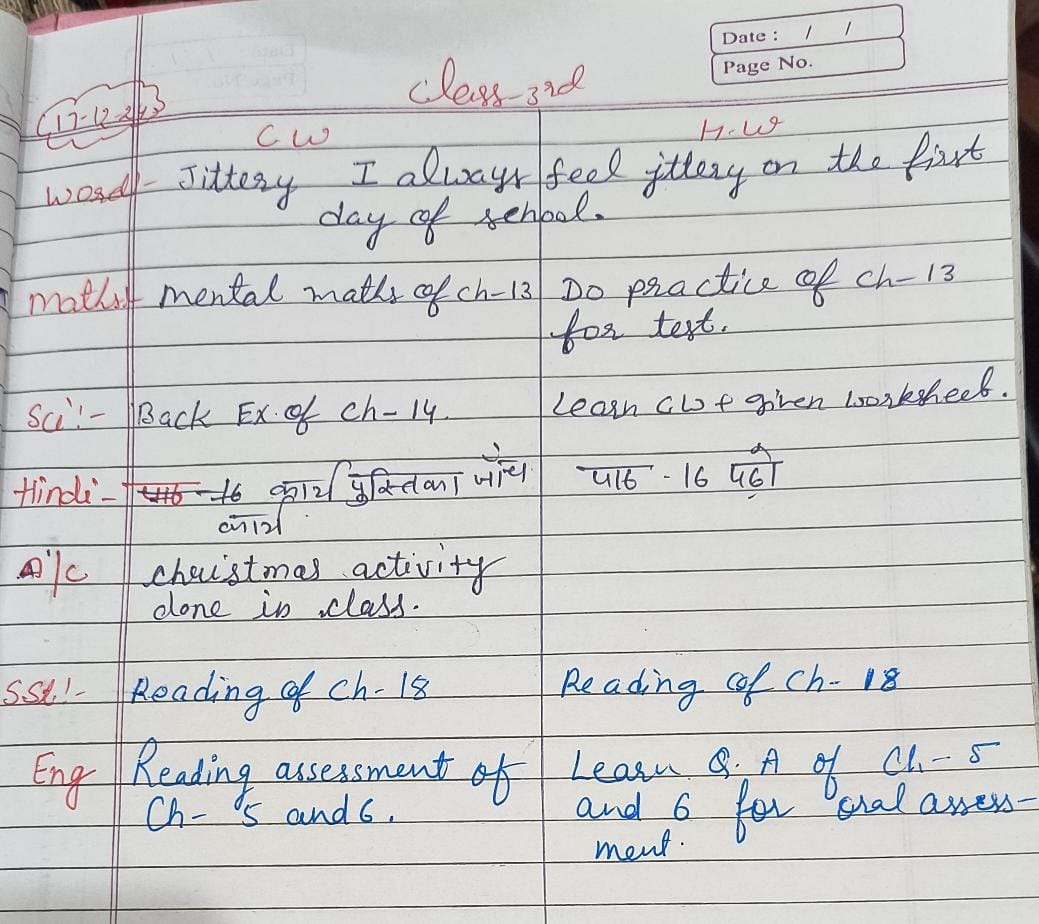 Date : / /
Page No.
Class-3rd
17-12-24
C W H.W
Word:- Jittery I always feel jittery on the first
day of school.
Maths:- Mental maths of ch-13 Do practice of ch-13
for test.
Sci:- Back Ex. of ch-14. Learn CW + given worksheet.
Hindi- पाठ-16 कार्य पुस्तिका जाँच पाठ - 16 पढ़ो
कार्य
A/C christmas activity
done in class.
SSt:- Reading of ch-18 Reading of ch-18
Eng Reading assessment of Learn Q. A of Ch-5
Ch-5 and 6. and 6 for oral assess-
ment.